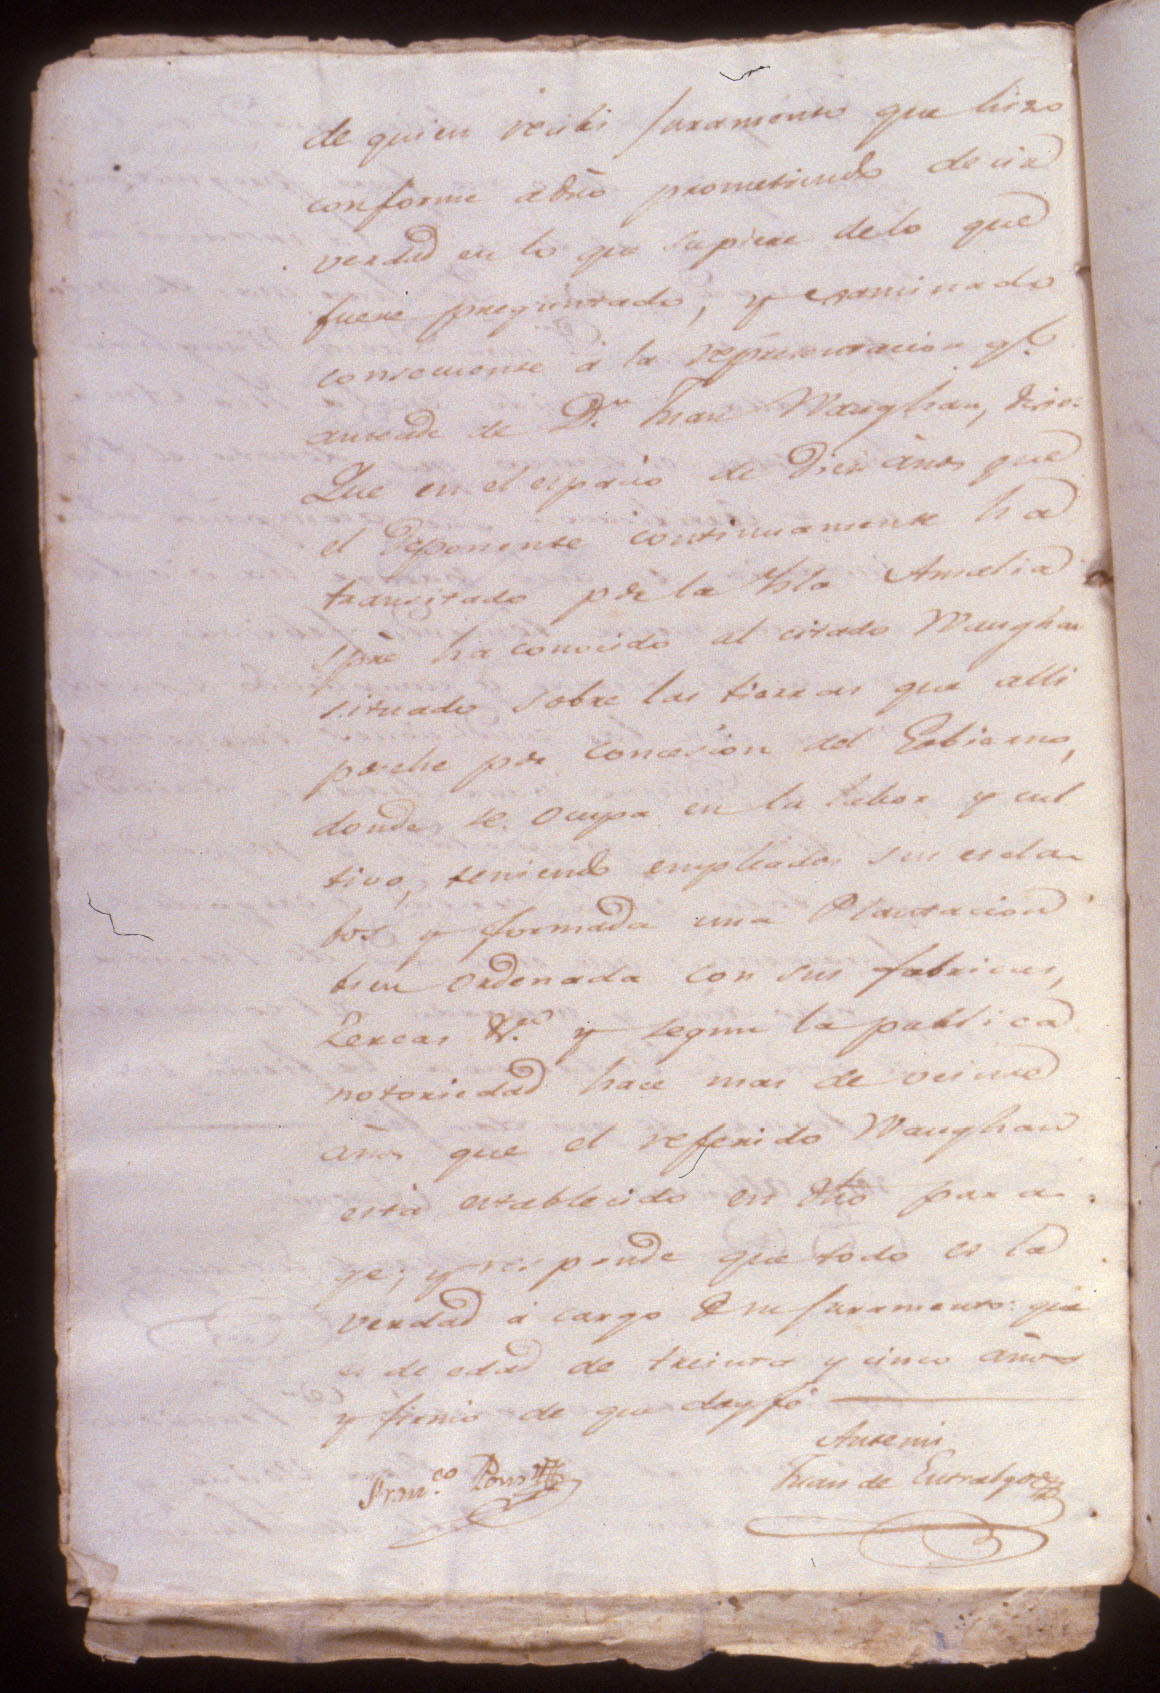 de quien recibi juramento que hizo
conforme a dro prometiendo decir
verdad en lo que supiere de lo que
fuere preguntado, y examinado
consecuente á la representacion qe.
antecede de Dn. Juan Waughan, dixo:
Que en el espacio de Diez años que
el Deponente continuamente ha
transitado por la Ysla Amelia
spre ha conocido al citado Waughan
situado sobre las tierras que alli
posehe por concesion del Gobierno,
donde se ocupa en la Labor y cul
tivo, teniendo empleados sus escla-
bos y formada una Plantacion
bien ordenada con sus fabricas,
Cercas &.a y segun la publica
notoriedad hace mas de veinte
años que el referido Waughan
está establecido en dho para-
ge; y responde que todo es la
verdad á cargo de su juramento: que
es de edad de treinta y cinco años
y firmó de que doy fé
Antemi
Fran.co Pons
Juan de Entralgo